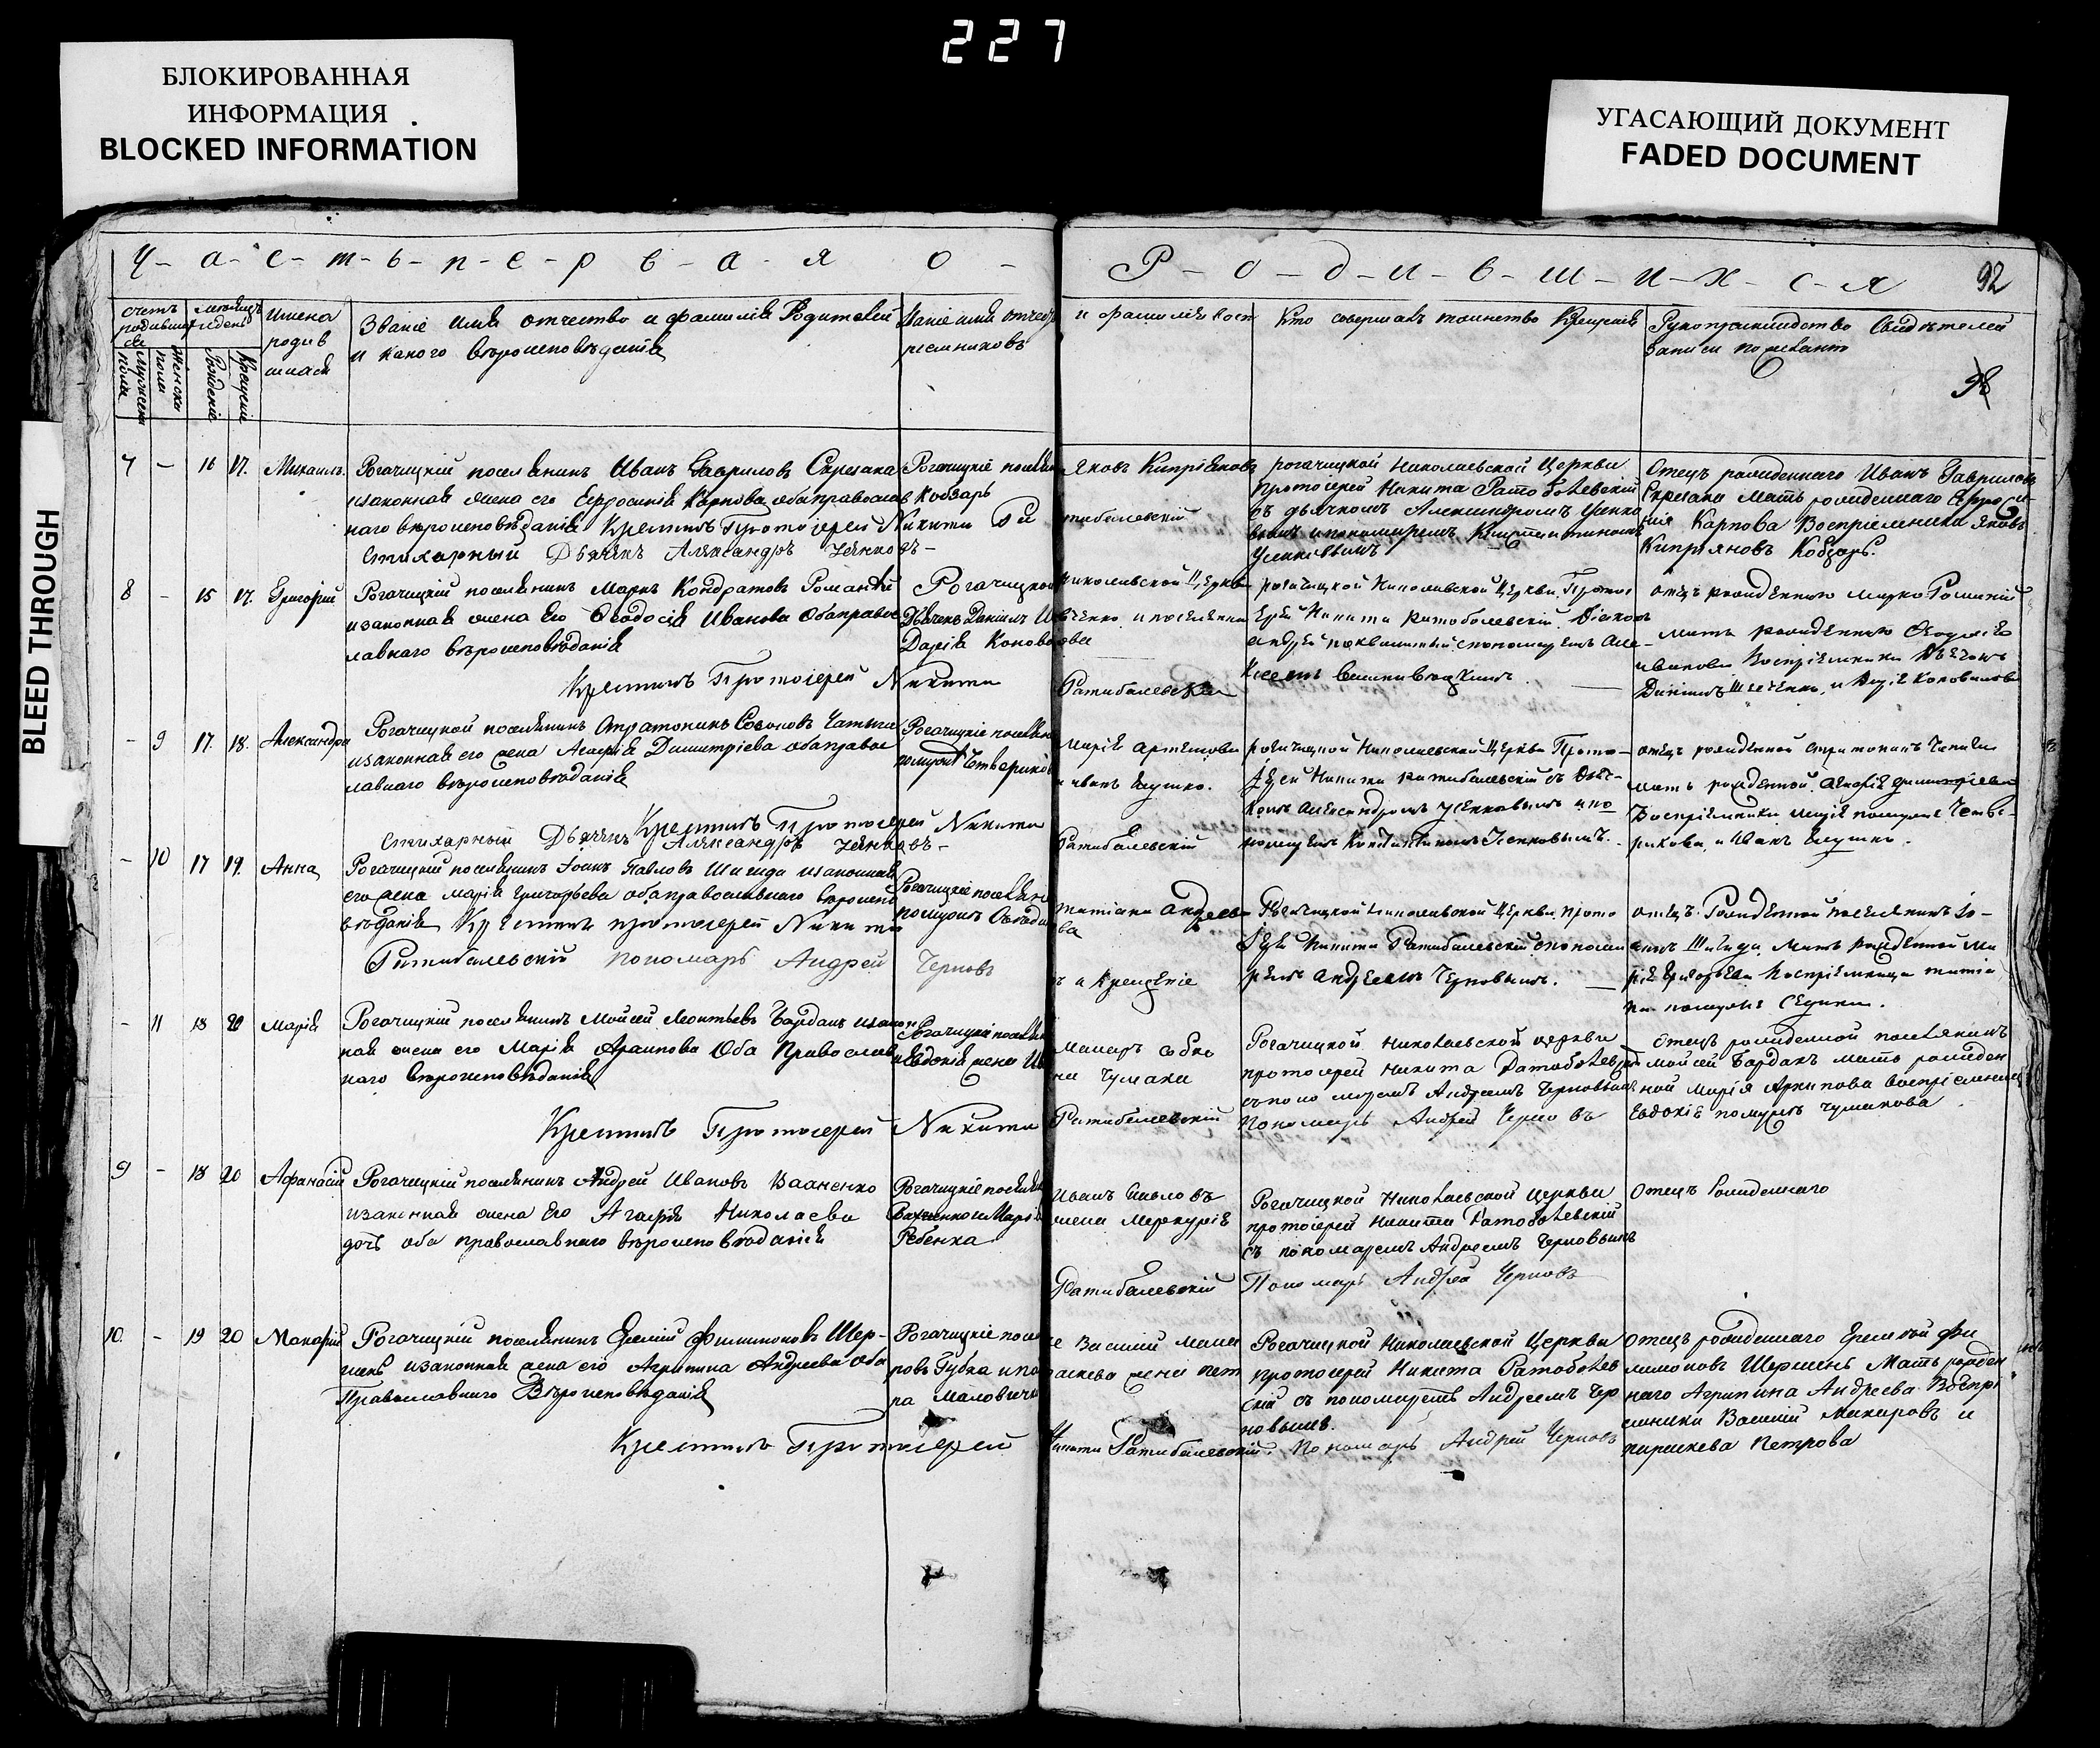 227
БЛОКИРОВАННАЯ
ИНФОРМАЦИЯ
BLOCKED INFORMATION
УГАСАЮЩИЙ ДОКУМЕНТ
FADED DOCUMENT
BLEED THROUGH
Ч-а-с-т-ь-п-е-р в-а-я о-
Р-о-д-и-в-ш-и-х-с-я 92
счетъ
родивших
ся
мѣсяцъ
и день
Имена
родив
шихся
Званіе имя отчество и фамилія Родителей
и какого вѣроисповѣданія
Званіе имя отчест
ріемниковъ
и фамилія восп
Кто совершалъ таинство Крещенія
Рукоприкладство Свидѣтелей
записи по желанію
98
Мужеска
пола
Женска
пола
Рожденіе
Крещеніе
7 - 16 17. Михаилъ.
Рогачицкій поселянинъ Иванъ Гавриловъ Скрегака
изаконная жена его Ефросинія Карпова оба православ
наго вѣроисповѣданія Крестилъ Протоіерей Никита Ра
Стихарный Дьячекъ Александръ Уенковъ-
Рогачицкіе посел
Кобзарь
Яковъ Кипріяновъ
тибалевскій
рогачицкой Николаевской Церкви
Протоіерей Никита Ратоболевскій
съ дьячкомъ Александромъ Уенко
вымъ ипономаремъ Константиномъ
Уенковымъ
Отецъ рожденнаго Иванъ Гавриловъ
Скрегака Мать рожденнаго Ефроси
нія Карпова Воспріемника Яковъ
Кипріяновъ Кобзарь.
8 - 15 17. Григорій
Рогачицкій поселянинъ Маркъ Кондратовъ Романій
изаконная жена Его Ѳеодосія Иванова Обаправос
лавнаго вѣроисповѣданія
Крестилъ Протоіерей Никита
Рогачицкой
Дьячекъ Даніилъ
Дарія Коновалова
Николаевской Церкви
Ратибалевскій
рогачицкой Николаевской Церкви Прото
Ерей Никита Ратоболевскій
отецъ рожденнаго Марко Романій
Мать рожденнаго Ѳеодосія
Иванова Воспріемники Дьячокъ
Даніилъ Шевченко, и Дарія Коновалова
- 9 17. 18. Александра
Рогачицкой поселянинъ Стратоникъ Созоновъ Чапыга
изаконная его жена Агафія Димитріева обаправос
лавнаго вѣроисповѣданія
Крестилъ Протоіерей Никита
Стихарный Дьячекъ Александръ Уенковъ-
Рогачицкіе посел
помужѣ Четвериков
Марія Артемова
и иванъ Глушко.
Ратибалевскій
рогачицкой Николаевской Церкви Прото-
Іерей Никита ратибалевскій съ дьяч-
комъ Александромъ Уенковымъ и по-
номаремъ Константиномъ Уенковымъ.
отецъ рожденной Стратоникъ Чапыга
мать рожденной Агафія Димитріева
Воспріемники Марія помужѣ Четве-
рикова, и Иванъ Глушко.
- 10 17 19. Анна
Рогачицкій поселянинъ Іоанъ Павловъ Шигида изаконная
его жена Марія Григорьева оба православнаго вѣроиспо
вѣданія Крестилъ протоіерей Никита
Ратибалевскій пономарь Андрей Черновъ
Рогачицкіе поселян
помужѣ
татіана Андрее
ва
Рогачицкой Николаевской Церкви Прото
Іерей Никита Ратибалевскій спонома
ремъ Андреемъ Черновымъ.
отецъ Рожденной поселянинъ Іо-
анъ Шигида, Мать рожденной Ма
рія Григорьева Воспріемница татіа
на помужѣ
- 11 18 20 Марія
Рогачицкій поселянинъ Моисей Леонтьевъ Бардакъ изакон
ная жена его Марія Архипова Оба Православ
наго вѣроисповѣданія
Крестилъ Протоіерей Никита
Рогачицкіе посел
иЕвдокія жена Ив
на Чумака
Ратибалевскій
Рогачицкой Николаевской церкви
протоіерей Никита Ратоболевскій
съпономаремъ Андреемъ Черновымъ
Пономарь Андрей Черновъ
Отецъ рожденной поселянинъ
Моисей Бардакъ мать рожден
ной Марія Архипова воспріемница
Евдокія помужѣ чумакова
9 - 18 20 Афанасій
Рогачицкій поселянинъ Андрей Ивановъ Вааненко
изаконная жена Его Агафія Николаева
дочь оба православнаго вѣроисповѣданія
Рогачицкіе поселян
Вахненко и Марія
Ребенка
Иванъ Павловъ
жена Меркурія
Ратибалевскій
Рогачицкой Николаевской Церкви
протоіерей Никита Ратоболевскій
съ пономаремъ Андреемъ Черновымъ
Пономарь Андрей Черновъ
Отецъ Рожденнаго
10. - 19 20 Макарій
Рогачицкій поселянинъ Еремій Филимоновъ Шер-
шень изаконная жена его Агрипина Андреева Оба
Православнаго Вѣроисповѣданія
Крестилъ Протоіерей
Рогачицкіе посел
ровъ Губка и па
ра Маловичка
е Василій Мака
раскева жена пет
Никита Ратибалевскій. Пономарь Андрей Черновъ
Рогачицкой Николаевской Церкви
протоіерей Никита Ратоболев
скій съ пономаремъ Андреемъ Чер
новымъ.
Отецъ рожденнаго Еремѣй Фи
лимоновъ Шершень Мать рожден
наго Агрипина Андреева Воспрі
емники Василій Макаровъ и
параскева Петрова